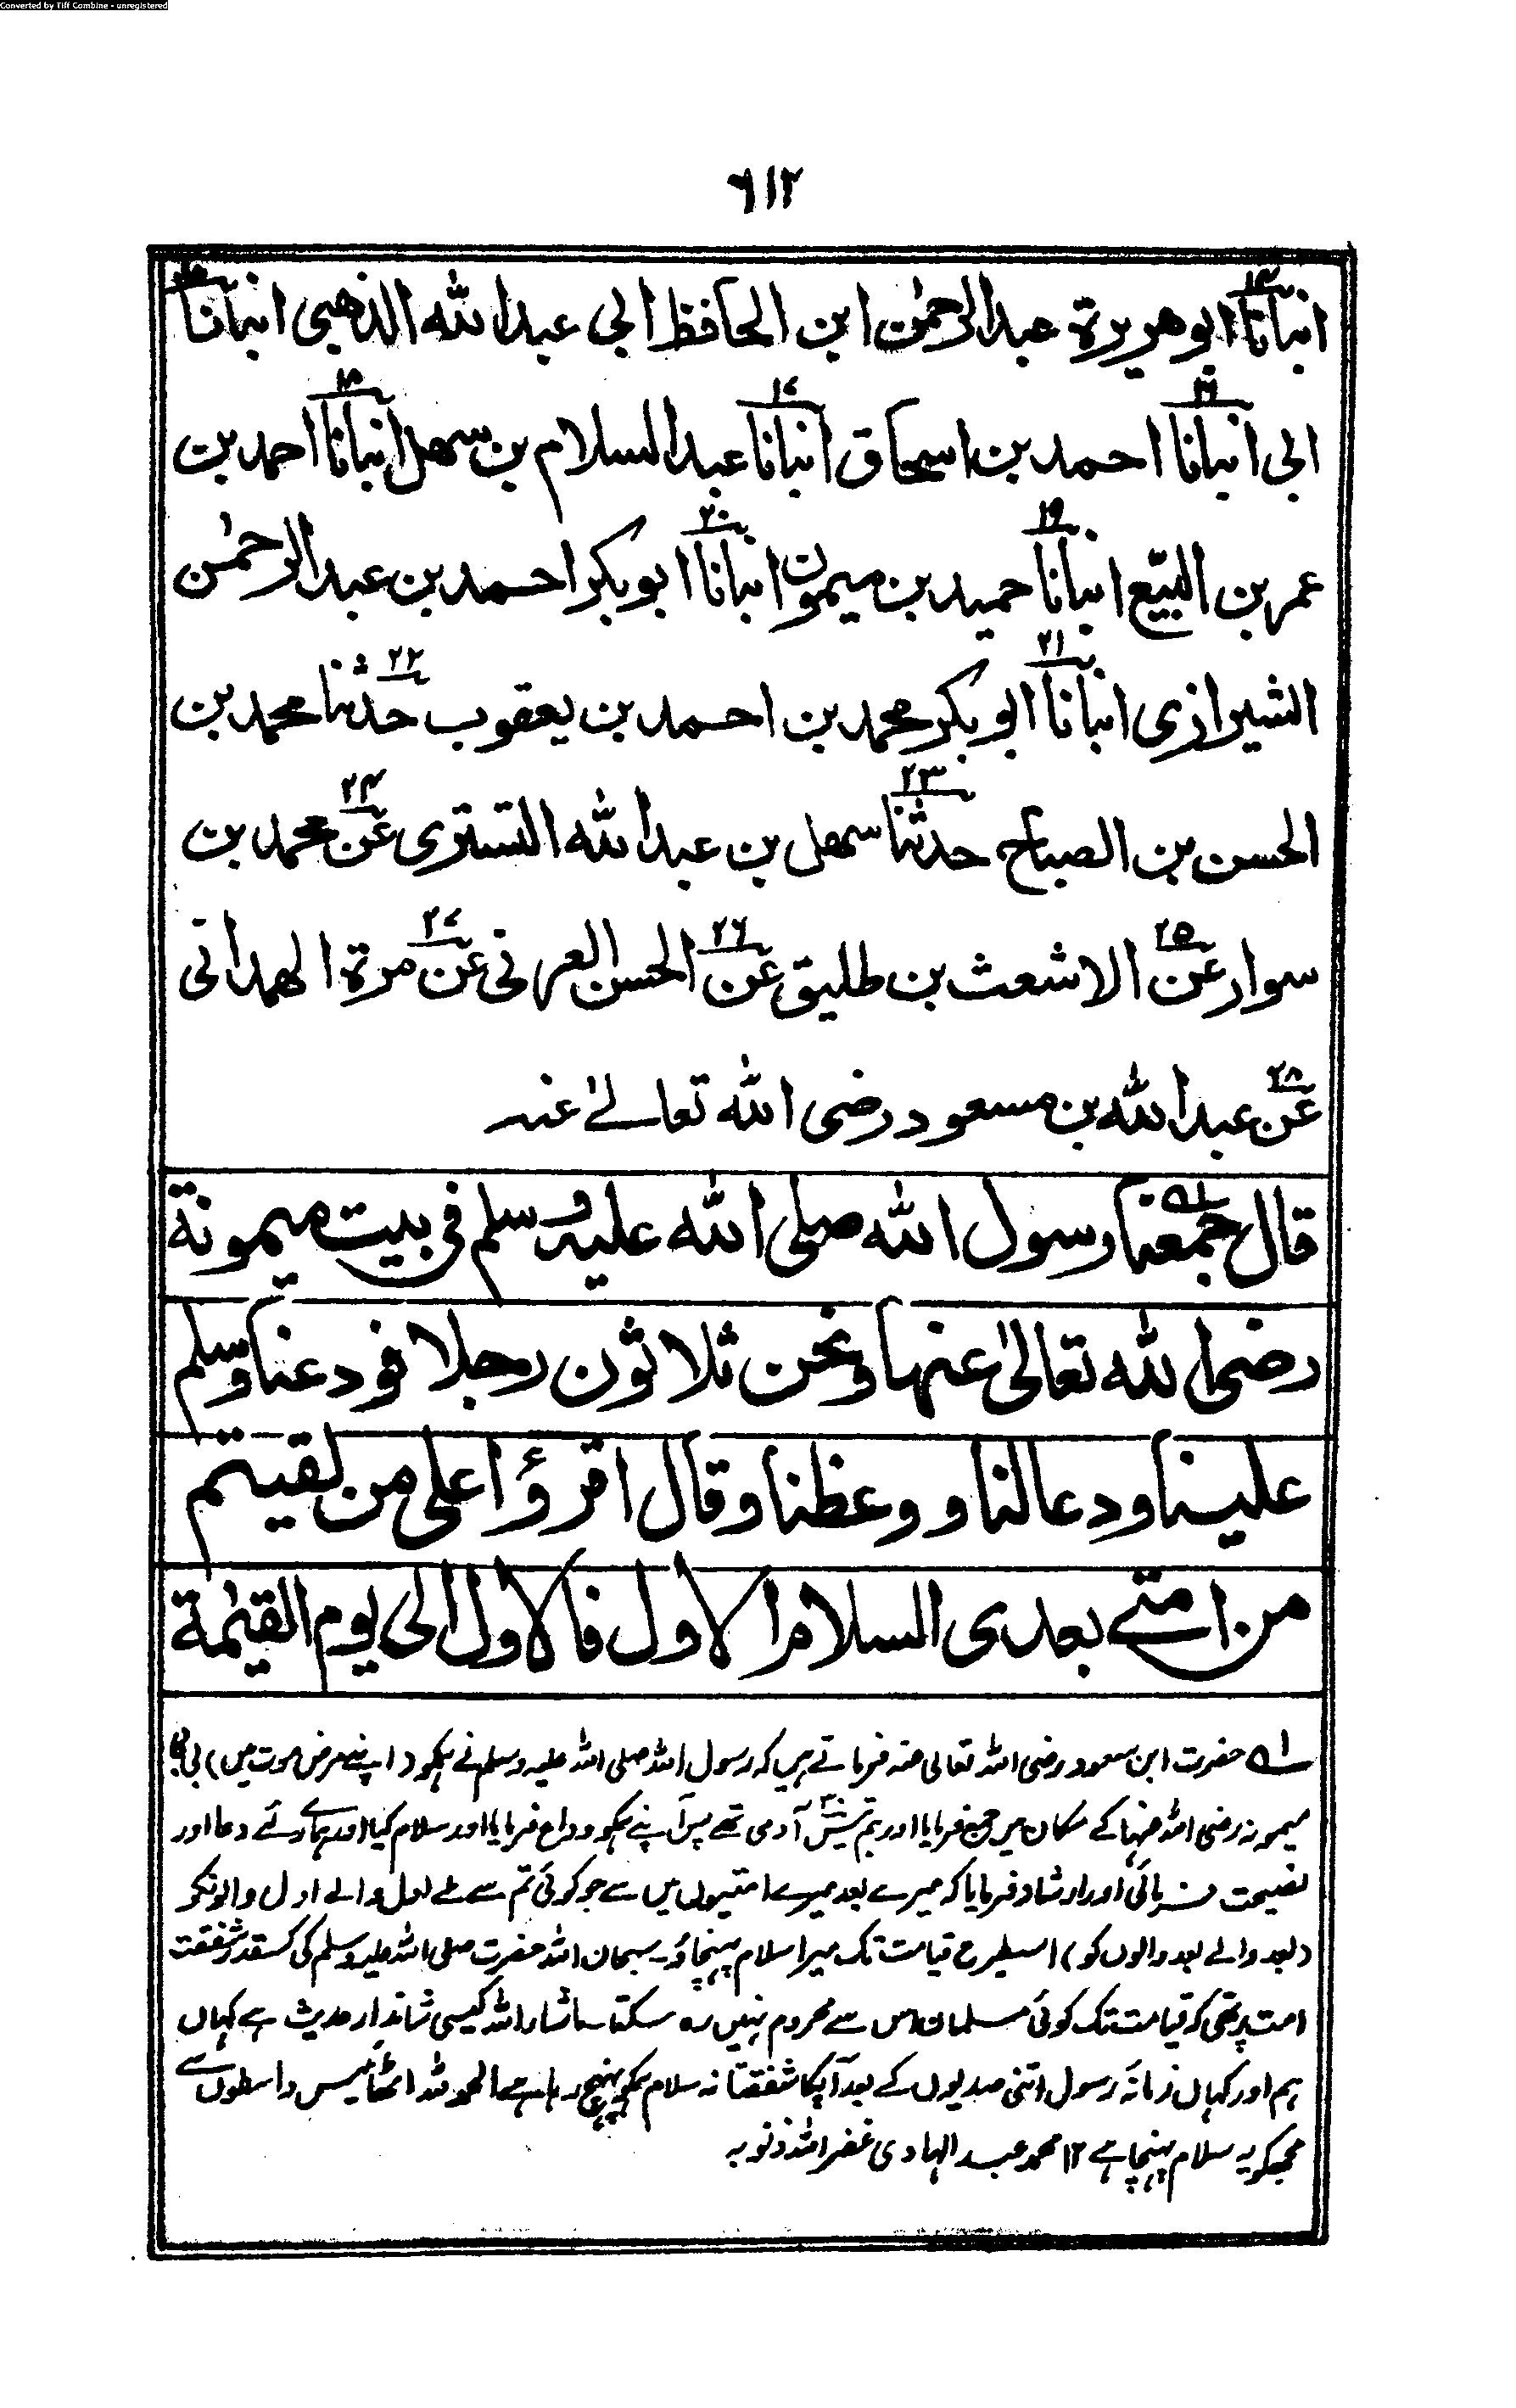 Converted by Tiff Combine - unregistered
٦١٢
انبانا ابوهريرة عبدالرحمٰن ابن الحافظ ابي عبدالله الذهبي انبانا
ابي انبانا احمد بن اسحاق انبانا عبدالسلام بن سهل انبانا احمد بن
عمر بن البيّع انبانا حميد بن ميمون انبانا ابوبكر احمد بن عبدالرحمٰن
الشيرازى انبانا ابوبكر محمد بن احمد بن يعقوب حدثنا محمد بن
الحسن بن الصباح حدثنا سهل بن عبدالله التسترى عن محمد بن
سوار عن الاشعث بن طليق عن الحسن العرنى عن مرة الهمدانى
عن عبدالله بن مسعود رضى الله تعالىٰ عنه
قال جمعنا رسول الله صلى الله عليه وسلم فى بيت ميمونة
رضى الله تعالىٰ عنها ونحن ثلاثون رجلا فودعنا وسلم
علينا ودعا لنا ووعظنا وقال اقرؤا على من لقيتم
من امتے بعدى السلام الاول فالاول الى يوم القيٰمة
۱ے حضرت ابن مسعود رضی اللہ تعالی عنہ فرماتے ہیں کہ رسول اللہ صلی اللہ علیہ وسلم نے ہمکو (اپنے مرض موت میں) بی بی
میمونہ رضی اللہ عنہا کے مکان میں جمع فرمایا اور ہم تیس ۳۰ آدمی تھے پس آپنے ہمکو وداع فرمایا اور سلام کیا اور ہمارے لئے دعا اور
نصیحت فرمائی اور ارشاد فرمایا کہ میرے بعد میرے امتیوں میں سے جو کوئی تم سے ملے اول والے اول والونکو
(بعد والے بعد والوں کو) اسیطرح قیامت تک میرا سلام پہنچاؤ۔ سبحان اللہ حضرت صلی اللہ علیہ وسلم کی کسقدر شفقت
امت پر تھی کہ قیامت تک کوئی مسلمان اس سے محروم نہیں رہ سکتا ماشاء اللہ کیسی شاندار حدیث ہے کہاں
ہم اور کہاں زمانۂ رسول اتنی صدیوں کے بعد آپکا شفقتانہ سلام ہمکو پہنچ رہا ہے الحمد للہ اٹھائیس واسطوں سے
مجھکو یہ سلام پہنچا ہے ۱۲ محمد عبد الہادی غفر اللہ ذنوبہ